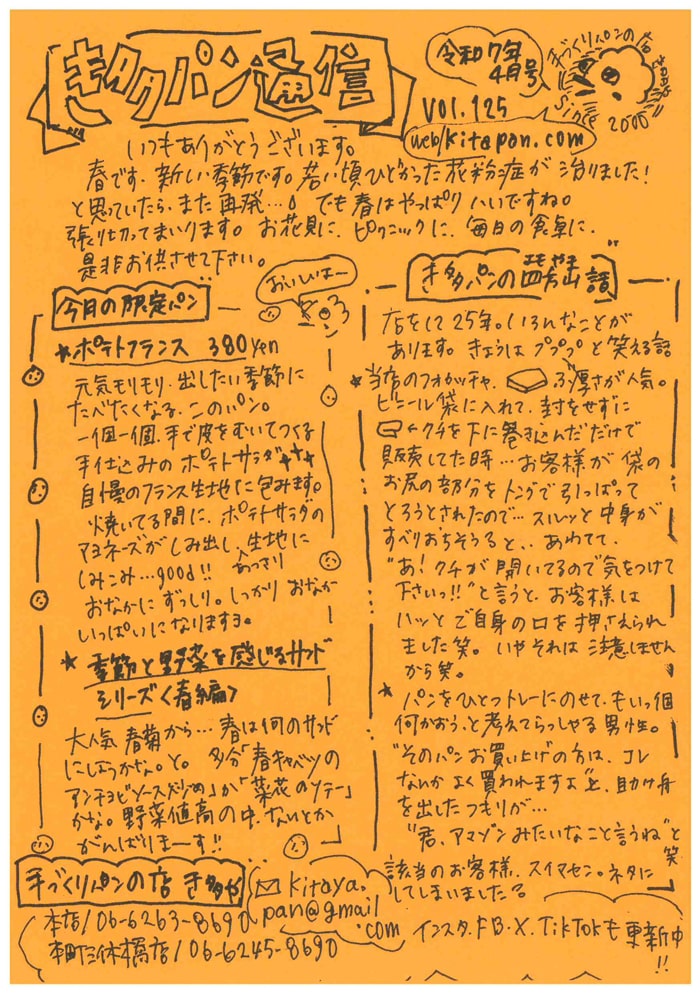 き多パン通信
令和7年
4月号
手づくりパンの店
since 2000
vol.125
web/kitapan.com
いつもありがとうございます。
春です、新しい季節です。若い頃ひどかった花粉症が治りました!
と思っていたら、また再発…。でも春はやっぱりいいですね。
張り切ってまいります。お花見に、ピクニックに、毎日の食卓に、
是非お供させて下さい。
今月の限定パン
おいしいよー
★ポテトフランス 380yen
元気モリモリ、出したい季節に
たべたくなる、このパン。
一個一個、手で皮をむいてつくる
手仕込みのポテトサラダ
自慢のフランス生地に包みます。
焼いてる間に、ポテトサラダの
マヨネーズがしみ出し、生地に
しみこみ…good!! あっさり
おなかにずっしり。しっかり おなか
いっぱいになりますョ。
★季節と野菜を感じるサンド
シリーズ〈春編〉
大人気 春菊から…春は何のサンド
にしようかな。と。多分「春キャベツの
アンチョビソース炒め」か「菜花のソテー」
かな。野菜値高の中、なんとか
がんばりまーす!!
き多パンの四方山話
よもやま
店をして25年。いろんなことが
あります。きょうはプププと笑える話
★当店のフォカッチャ、ぶ厚さが人気。
ビニール袋に入れて、封をせずに
←クチを下に巻き込んだだけで
販売してた時…お客様が袋の
お尻の部分をトングで引っぱって
とろうとされたので…スルッと中身が
すべりおちそうると、、あわてて、
"あ!クチが開いてるので気をつけて
下さいっ!!"と言うと、お客様は
ハッとご自身の口を押さえられ
ました笑。いやそれは注意しません
から笑。
★パンをひとつトレーにのせて、もいっ個
何かおう、と考えてらっしゃる男性。
"そのパンお買い上げの方は、コレ
なんか よく買われますよ"と、助け舟
を出したつもりが…
"君、アマゾンみたいなこと言うね"と笑
該当のお客様、スイマセン。ネタに
してしまいました?
手づくりパンの店 き多や
本店/06-6263-8690
本町三休橋店/06-6245-8690
kitaya.
pan@gmail
.com
インスタ.FB.X.TikTokも更新中!!